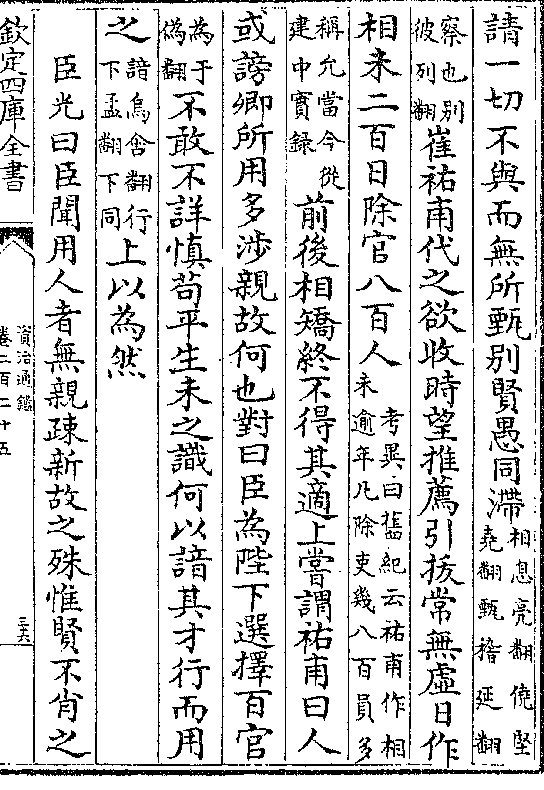 請一切不與而無所甄别賢愚同滯相息亮翻僥堅堯翻甄稽延翻
察也别彼列翻崔祐甫代之欲收時望推薦引拔常無虛日作
相未二百日除官八百人考異曰舊紀云祐甫作相未逾年凡除吏幾八百員多
稱允當今從建中實録前後相矯終不得其適上嘗謂祐甫曰人
或謗卿所用多涉親故何也對曰臣為陛下選擇百官
為于偽翻不敢不詳慎苟平生未之識何以諳其才行而用
之諳烏含翻行下孟翻下同上以為然
臣光曰臣聞用人者無親疎新故之殊惟賢不肖之
欽定四庫全書
資治通鑑
卷二百二十五
三六